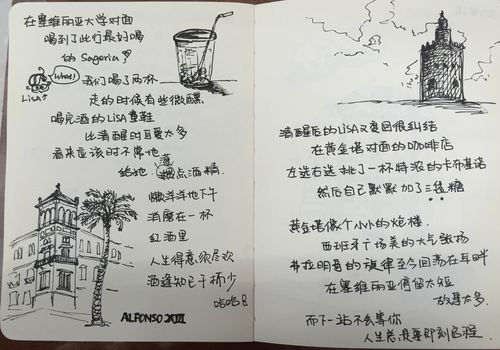 在塞维丽亚大学对面
喝到了此行最好喝
的 Sageria!
Whaa!
LiSA↑
我们喝了两杯
走的时候有些微醺
喝完酒的LiSA童鞋
比清醒时可爱太多
看来应该时不常地
给她灌点酒精.
懒洋洋地下午
消磨在一杯
红酒里
人生得意须尽欢
酒逢知己千杯少
哈哈哈
ALFONSO XIII
清醒后的LiSA又变回很纠结
在黄金塔对面的咖啡店
左选右选挑了一杯特浓的卡布基诺
然后自己默默加了三袋糖
黄金塔像个小小的炮楼
西班牙广场美的大气张扬
弗拉明哥的旋律至今回荡在耳畔
在塞维丽亚停留太短
故事太多.
而下一站不会等你
人生总是要即刻启程.